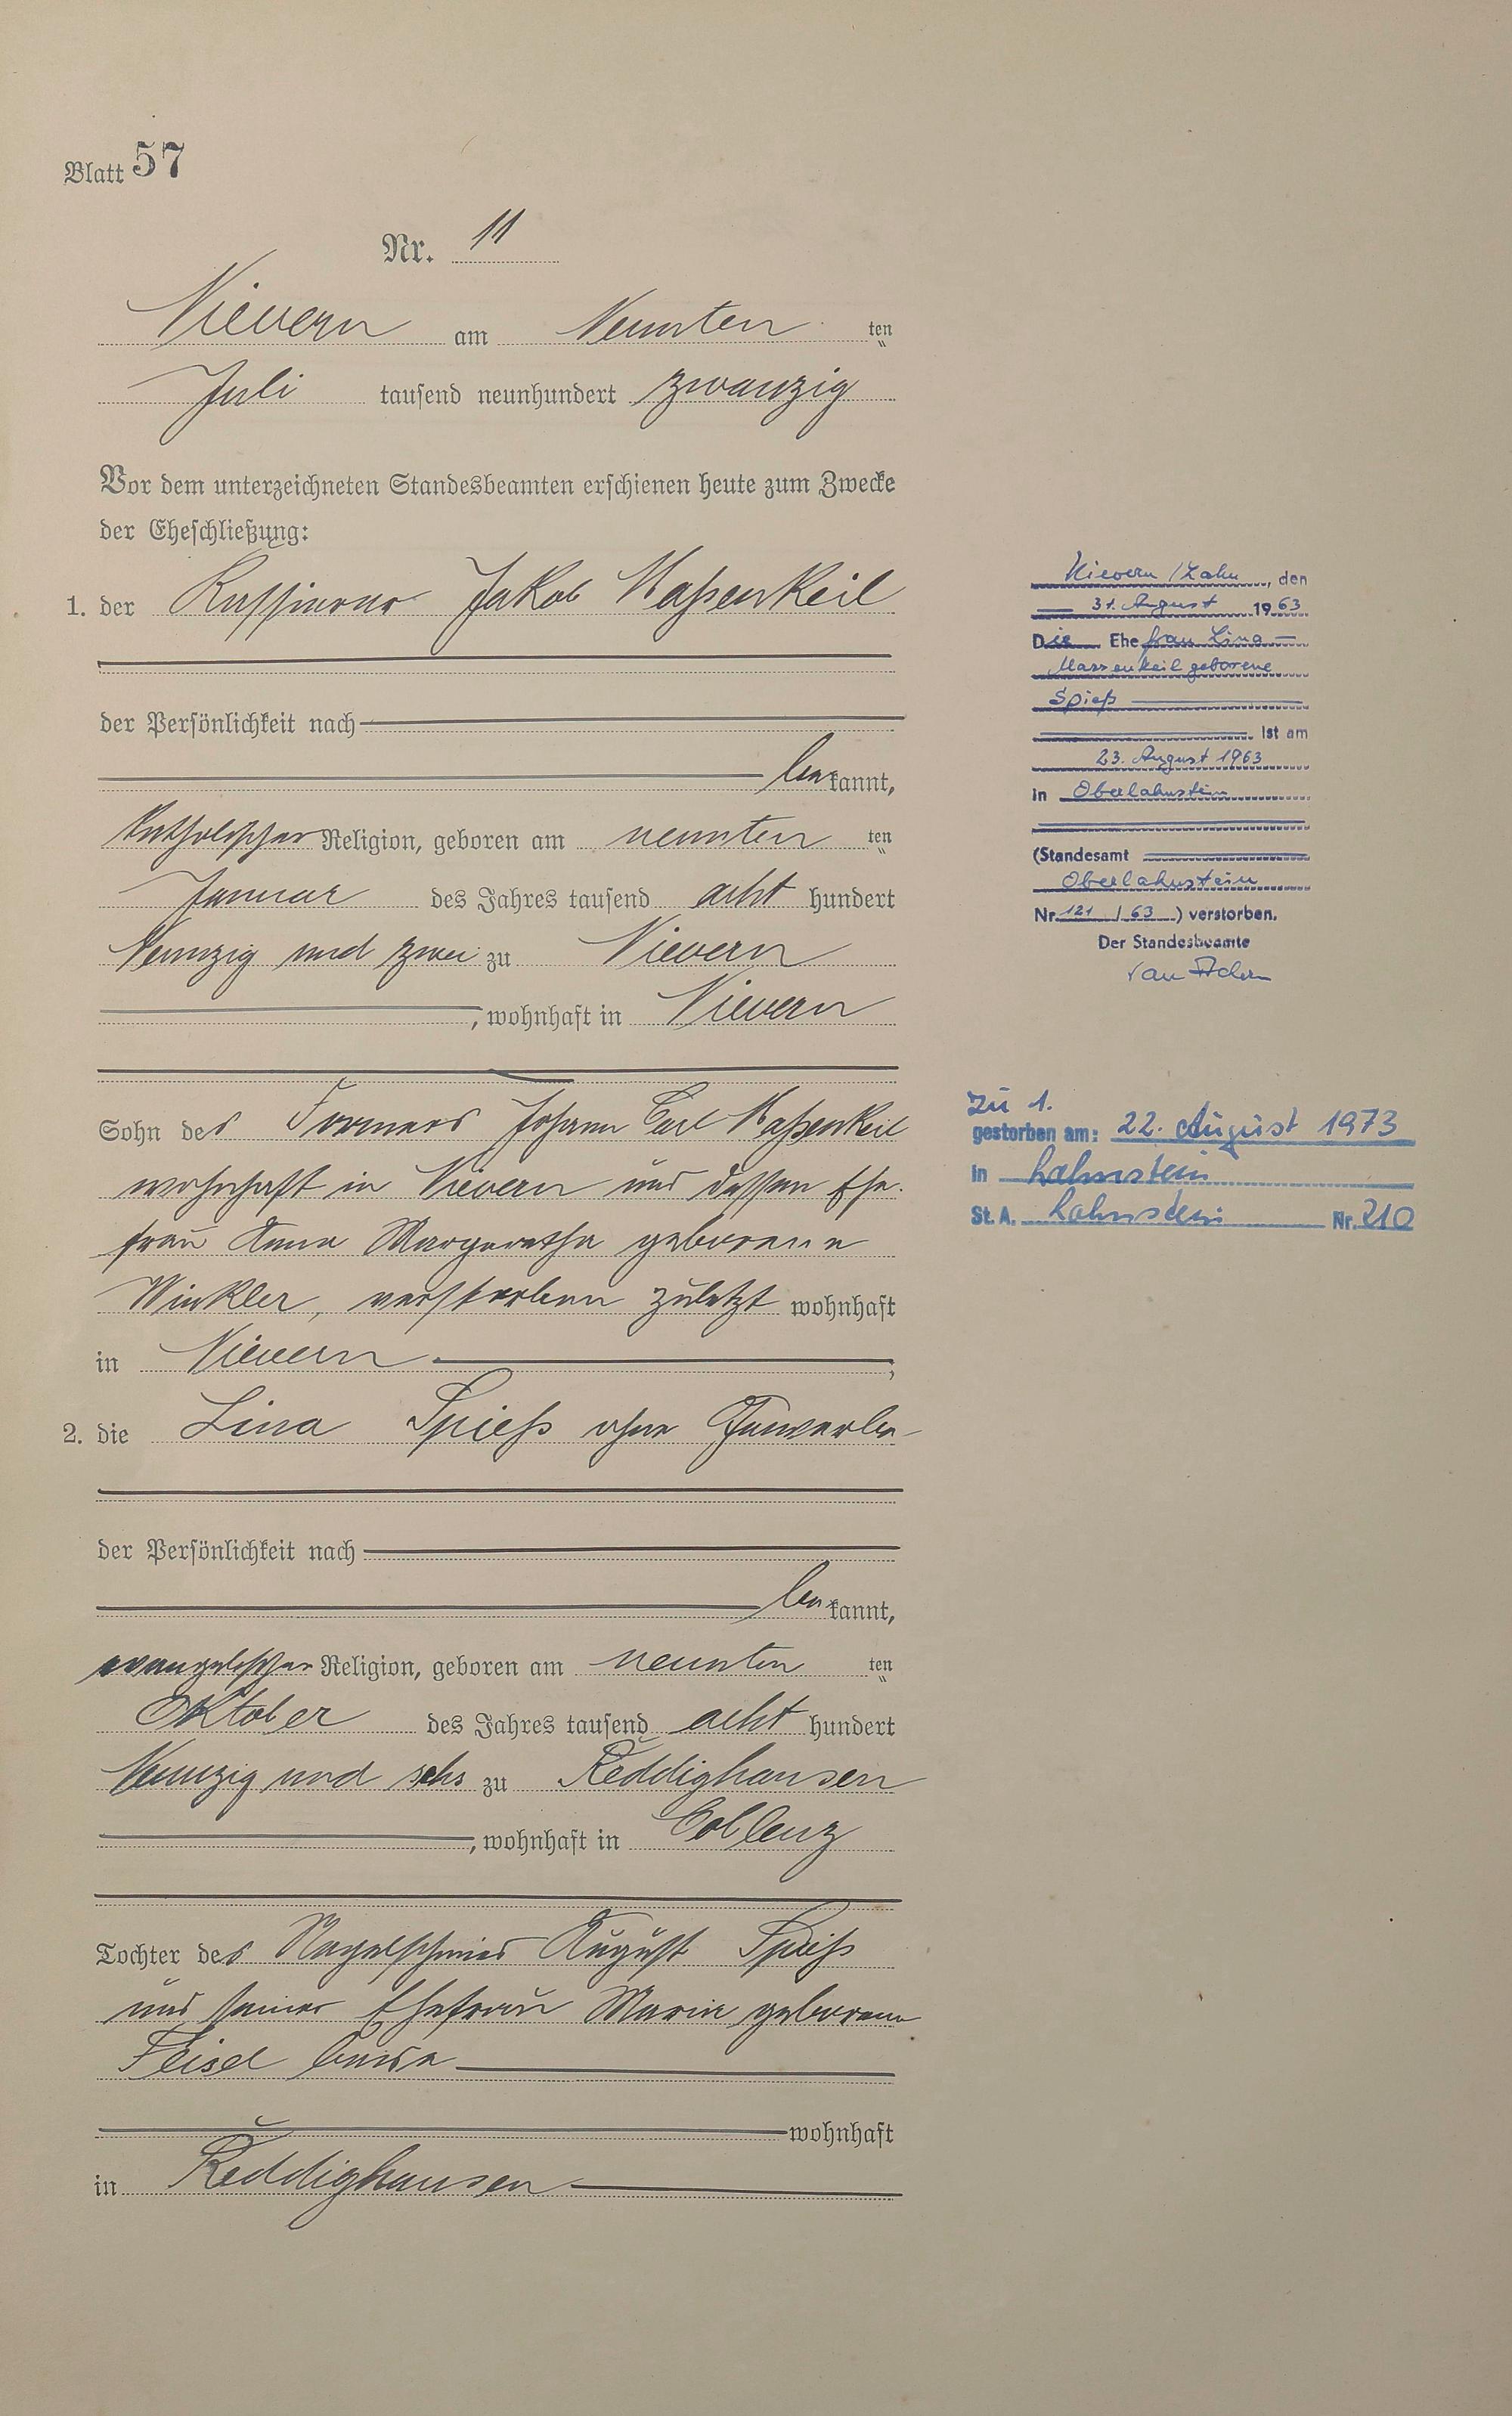 Blatt 57
Nr. 11
Nievern am Neunten ten
Juli tausend neunhundert zwanzig
Vor dem unterzeichneten Standesbeamten erschienen heute zum Zwecke
der Eheschließung:
1. der Kassierer Jakob Maßenkeil
der Persönlichkeit nach
bekannt,
katholischer Religion, geboren am neunten ten
Januar des Jahres tausend acht hundert
Neunzig und zwei zu Nievern
, wohnhaft in Nievern
Sohn des Formers Johann Carl Maßenkeil
wohnhaft in Nievern und dessen Ehe-
frau Anna Margaretha geborene
Winkler, verstorben zuletzt wohnhaft
in Nievern,
2. die Lina Spieß ohne Gewerbe
der Persönlichkeit nach
bekannt,
evangelischer Religion, geboren am neunten ten
Oktober des Jahres tausend acht hundert
Neunzig und sechs zu Reddighausen
, wohnhaft in Coblenz
Tochter des Nagelschmied August Spieß
und seiner Ehefrau Maria geborene
Feisel beide
wohnhaft
in Reddighausen
Nievern/Lahn, den
31. August 1963
Die Ehefrau Lina
Massenkeil geborene
Spieß
ist am
23. August 1963
in Oberlahnstein
(Standesamt
Oberlahnstein
Nr. 121 / 63 ) verstorben.
Der Standesbeamte
Zu 1.
gestorben am: 22. August 1973
in Lahnstein
St. A. Lahnstein Nr. 210